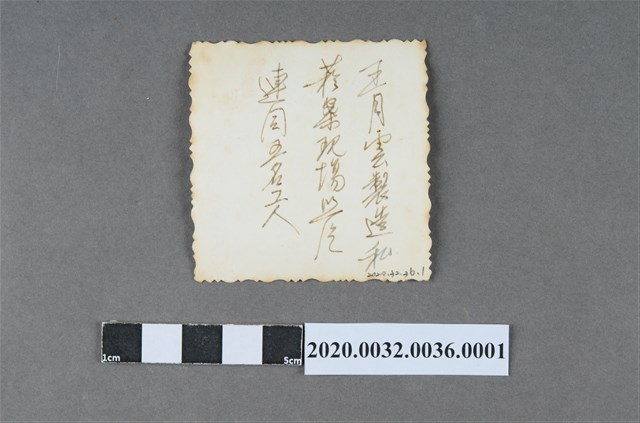 王月雲製造私
菸案現場照片
連同五名工人
2020.32.36.1
1cm
5cm
2020.0032.0036.0001